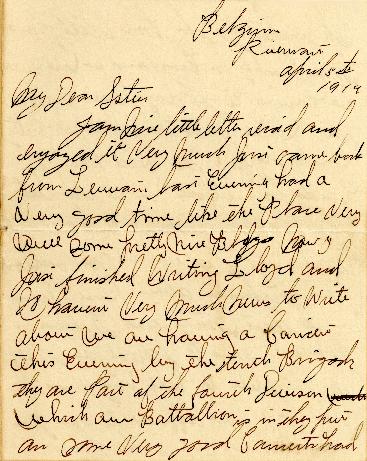 Belgium
Riverair
April 5th
1919
My Dear Sister
your nice little letter recived and
enjoyed it Very Much Just came back
from Leuvain last Evening had a
Very good time like the Place Very
Well some pretty nice
Just finished Writing Lloyd and
I havent Very Much News to Write
about We are having a Concert
this Evening by the tenth Brigade
they are Part of the fourth Divison
Which our Battallion is in they put
on some Very good Concerts had